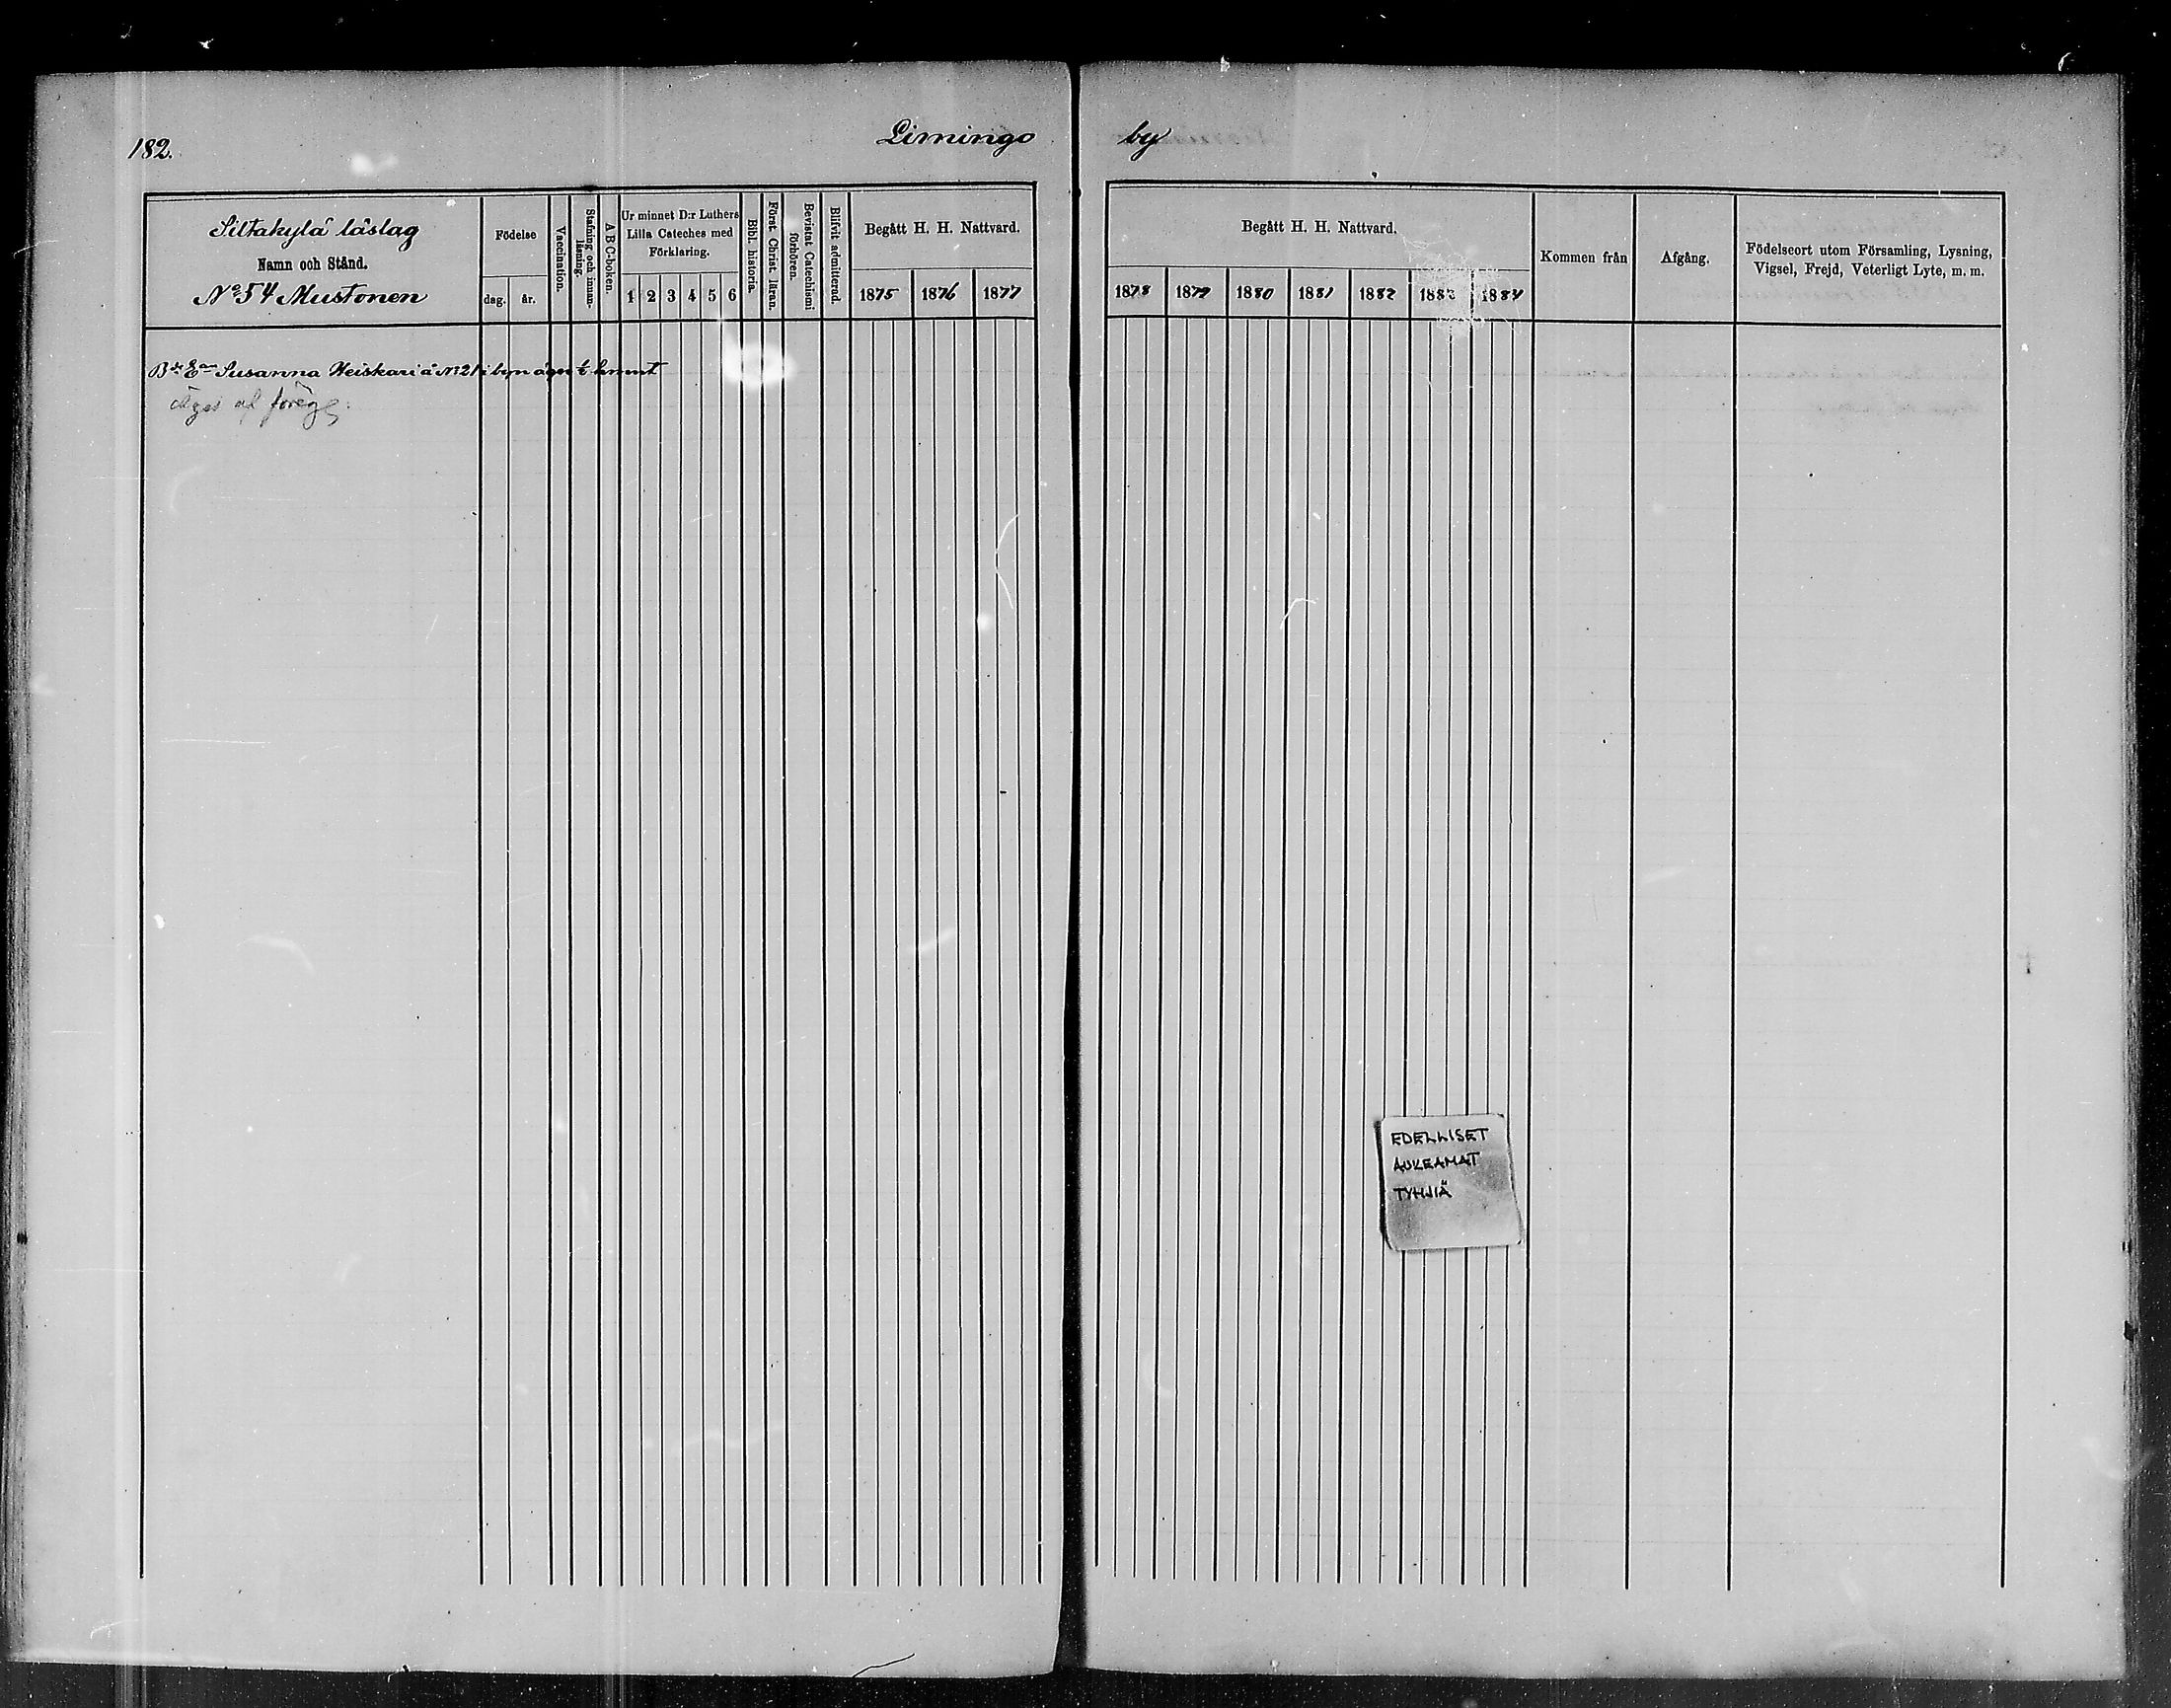 182.
Limingo by
Siltakylä läslag
Namn och Stånd.
No 54 Mustonen
Födelse
dag. år.
Vaccination.
Stafning och innan-
läsning.
A B C-boken.
Ur minnet D:r Luthers
Lilla Cateches med
Förklaring.
1 2 3 4 5 6
Bibl. historia.
Först. Christ. läran.
Bevistat Catechismi
förhören.
Blifvit admitterad.
Begått H. H. Nattvard.
1875 1876 1877
Begått H. H. Nattvard.
1878 1879 1880 1881 1882 1883 1884
Kommen från
Afgång.
Födelseort utom Församling, Lysning,
Vigsel, Frejd, Veterligt Lyte, m. m.
Susanna Heiskari å No 21 i byn äger hemmt
äges af föreg:
EDELLISET
AUKEAMAT
TYHJIÄ